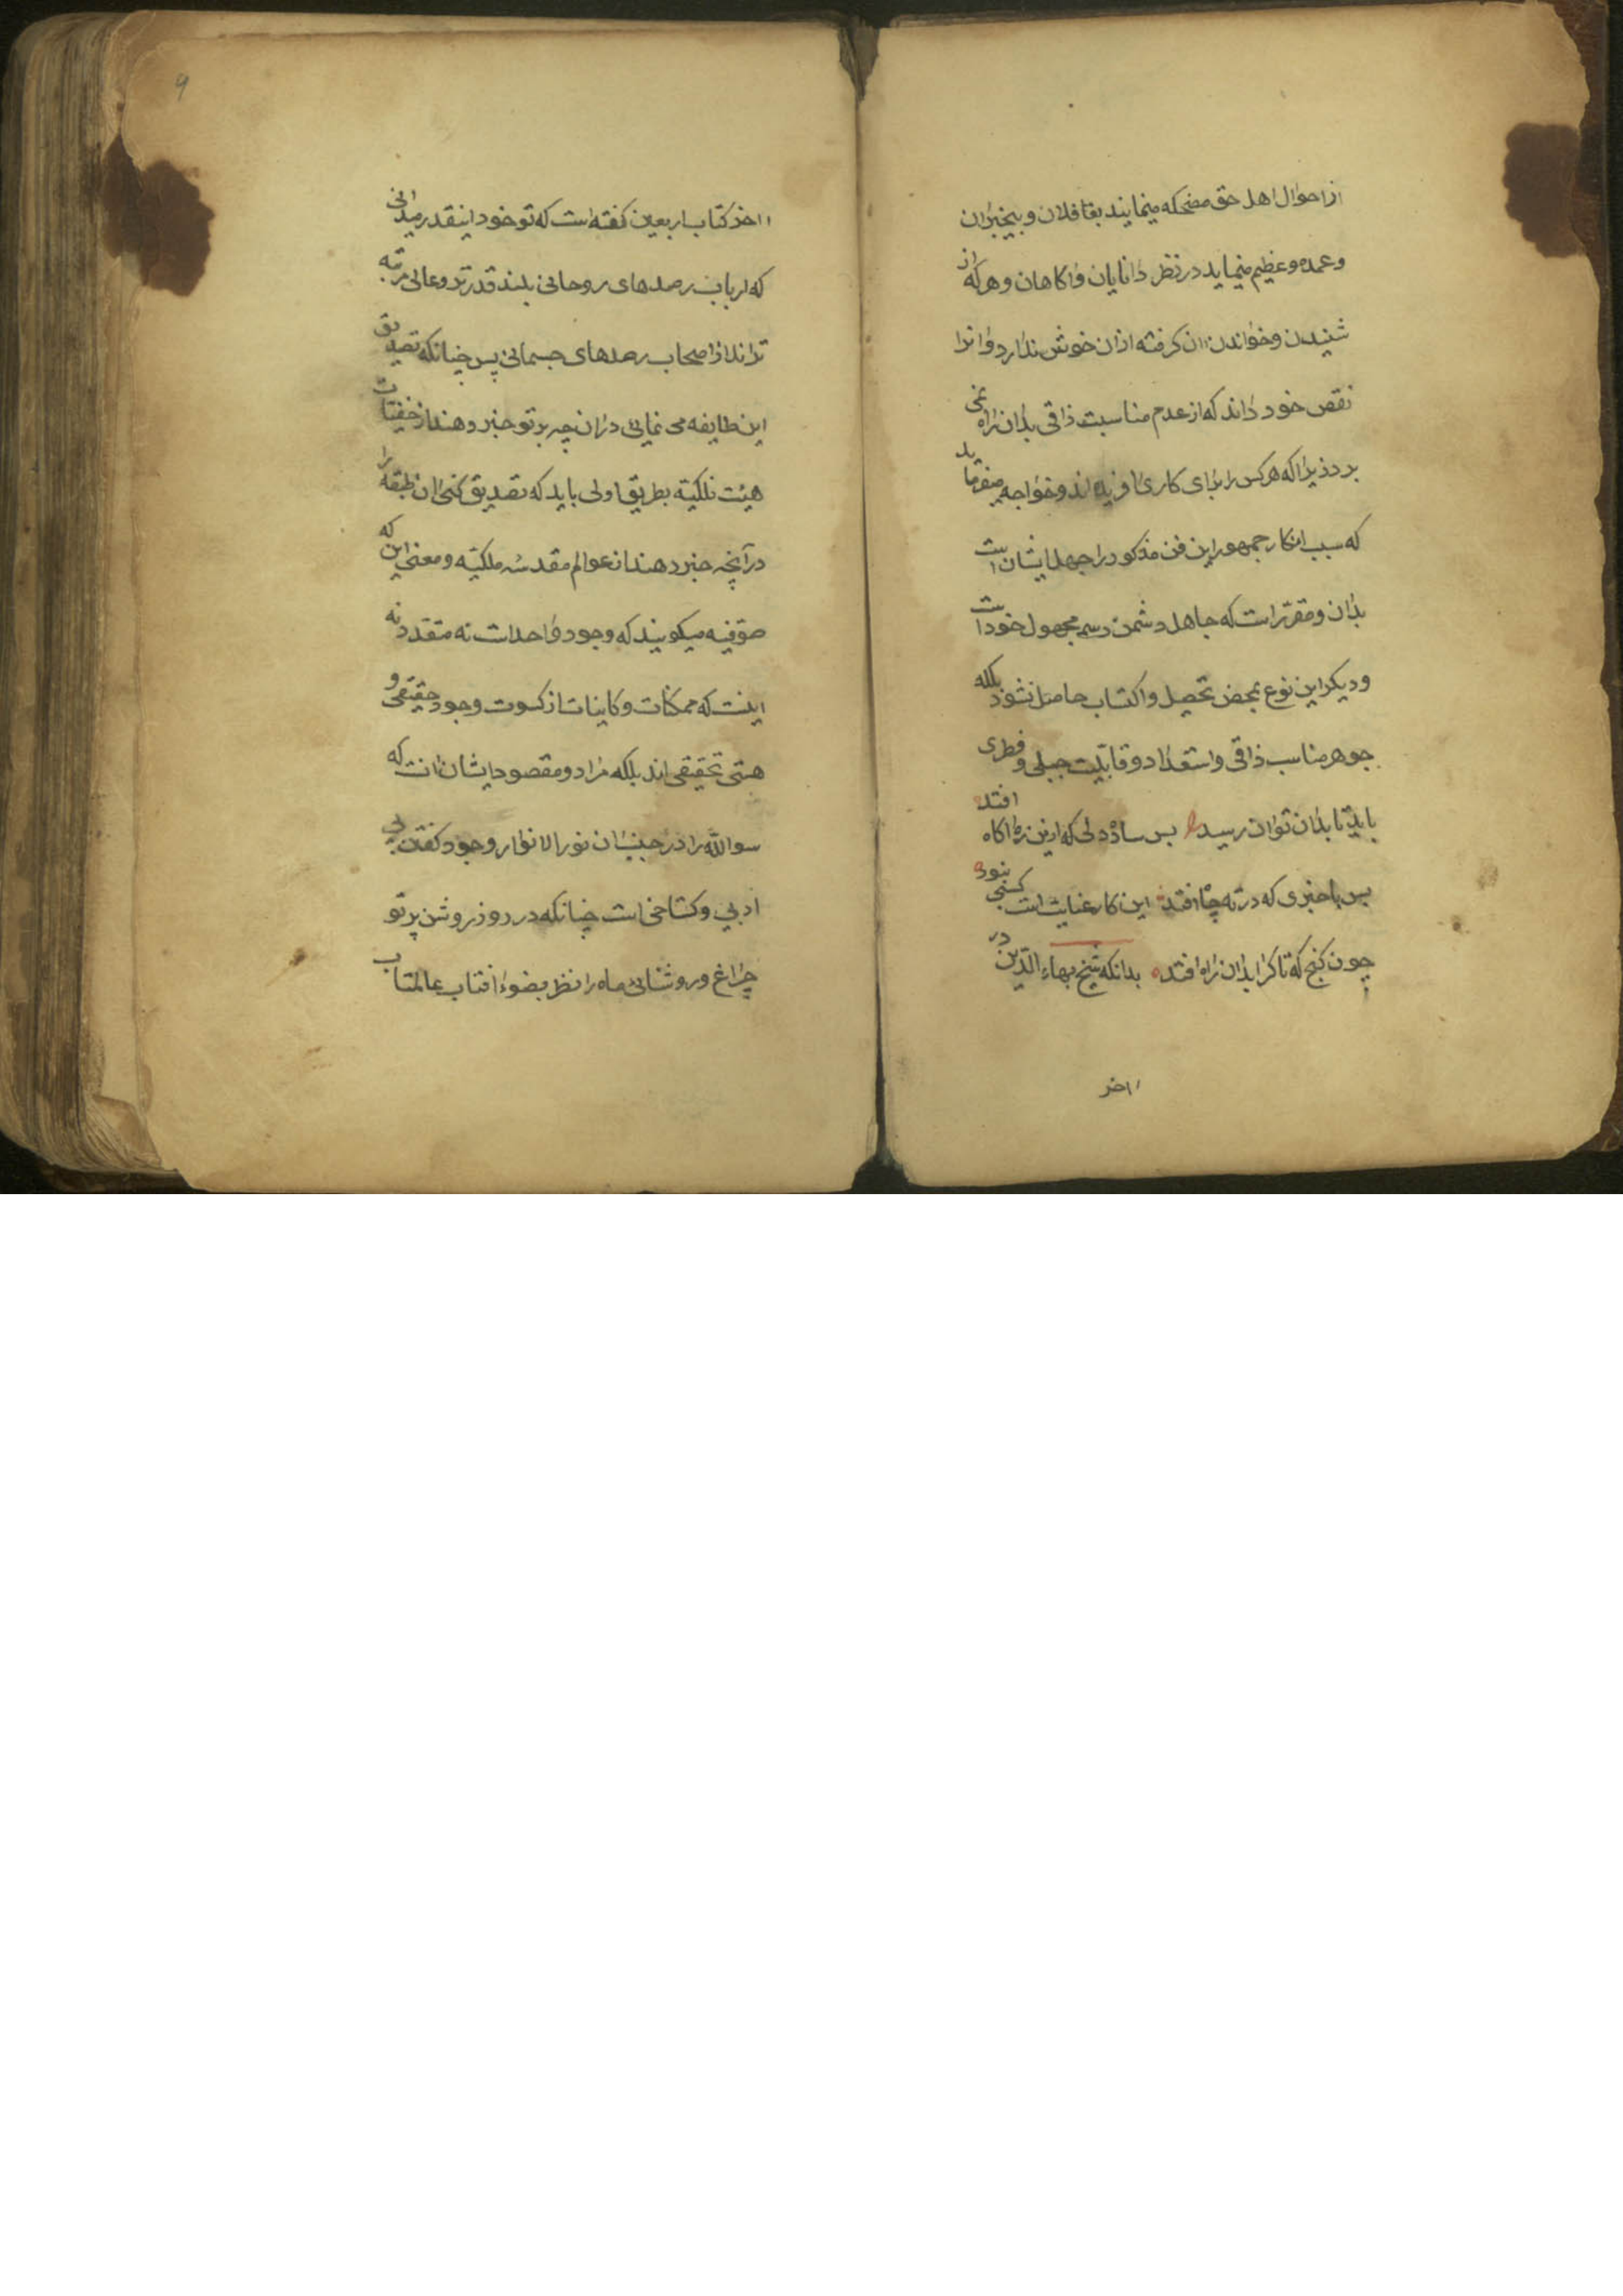 از احوال اهل حق مضحکه مینمایند بغافلان و بیخبران
و عمده و عظیم مینماید در نظر دانایان و اکاهان و هرکه از
شنیدن و خواندن ان کرفته ازان خوش ندارد و انرا
نقص خود داند که از عدم مناسبت ذاتی بدان راه نمی
برد زیرا که هرکس را برای کاری افریده اند و خواجه میفرماید
که سبب انکار جمهور این فن مذکور را جهل ایشان است
بدان و مقرّر است که جاهل دشمن رسم مجهول خود است
و دیکر این نوع بمحض تحصیل و اکتساب حاصل نشود بلکه
جوهر مناسب ذاتی و استعداد و قابلیت جبلی و فطری
باید تا بدان توان رسید بس ساده دلی که ازین راه اکاه افتد
بس باخبری که در ته چاه افتد این کار عنایت است کسبی نبود
چون کنج که تا کرا بدان راه افتد بدانکه شیخ بهاء الدّین در
اخر
۹
اخر کتاب اربعین کفته است که تو خود اینقدر میدانی
که ارباب رصدهای روحانی بلند قدرتر و عالی مرتبه
تراند از اصحاب رصدهای جسمانی پس چنانکه تصدیق
این طایفه می نمایی دران چه بر تو خبر دهند از خفیّات
هیئت فلکیّه بطریق اولی باید که تصدیق کنی ان طبقه را
در آنچه خبر دهند از عوالم مقدسه ملکیّه و معنی این که
صوفیه میکویند که وجود واحد است نه متعدد نه
اینست که ممکنات و کاینات از کسوت وجود حقیقی و
هستی تحقیقی اند بلکه مراد و مقصود ایشان انست که
سوالله را در جنب ان نور الانوار وجود کفتن بی
ادبی و کستاخی است چنانکه در روز روشن پرتو
چراغ و روشنایی ماه را نظر بضوء افتاب عالمتاب